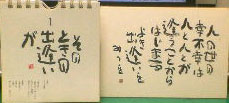 1
その
ときの
出逢いが
人の世の
幸不幸は
人と人とが
逢うことから
はじまる
よき
出逢いを
みつを